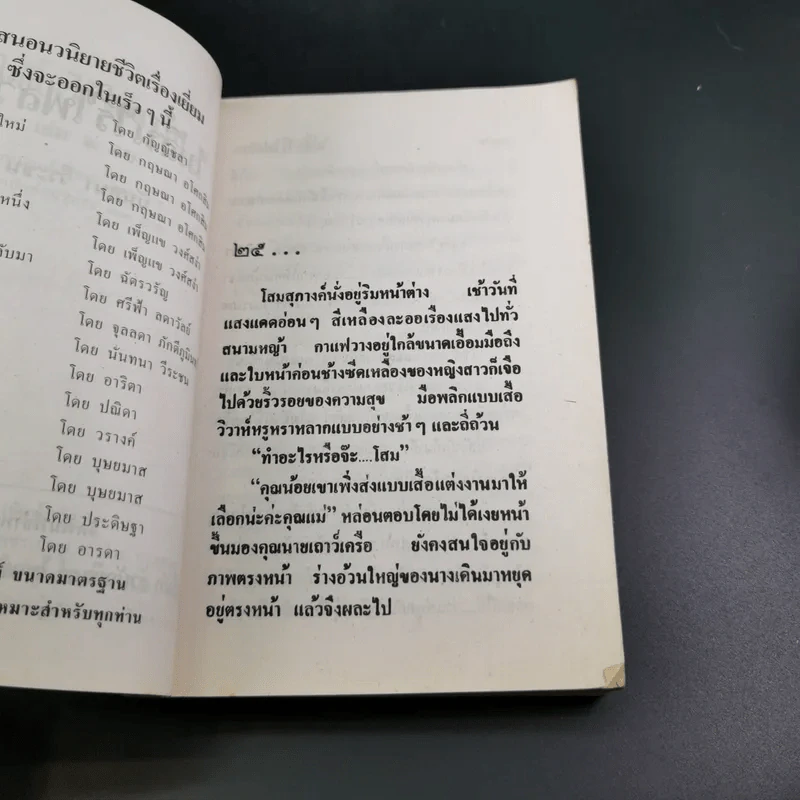 สนอนวนิยายชีวิตเรื่องเยี่ยม
ซึ่งจะออกในเร็ว ๆ นี้
ใหม่ โดย กัญญ์ชลา
โดย กฤษณา อโศกสิน
โดย กฤษณา อโศกสิน
หนึ่ง โดย กฤษณา อโศกสิน
โดย เพ็ญแข วงศ์สง่า
จับมา โดย เพ็ญแข วงศ์สง่า
โดย ฉัตรวรัญ
โดย ศรีฟ้า ลดาวัลย์
โดย จุลลดา ภักดีภูมินทร์
โดย นันทนา วีระชน
โดย อาริตา
โดย ปณิดา
โดย วรางค์
โดย บุษยมาส
โดย บุษยมาส
โดย ประดิษฐา
โดย อารดา
ขนาดมาตรฐาน
เหมาะสำหรับทุกท่าน
๒๕ . . .
โสมสุภางค์นั่งอยู่ริมหน้าต่าง เช้าวันที่
แสงแดดอ่อน ๆ สีเหลืองละออเรื่องแสงไปทั่ว
สนามหญ้า กาแฟวางอยู่ใกล้ขนาดเอื้อมมือถึง
และใบหน้าค่อนช้างซีดเหลืองของหญิงสาวก็เจือ
ไปด้วยริ้วรอยของความสุข มือพลิกแบบเสื้อ
วิวาห์หรูหราหลากแบบอย่างช้า ๆ และถี่ถ้วน
“ทำอะไรหรือจ๊ะ....โสม”
“คุณน้อยเขาเพิ่งส่งแบบเสื้อแต่งงานมาให้
เลือกน่ะค่ะคุณแม่” หล่อนตอบโดยไม่ได้เงยหน้า
ขึ้นมองคุณนายเถาว์เครือ ยังคงสนใจอยู่กับ
ภาพตรงหน้า ร่างอ้วนใหญ่ของนางเดินมาหยุด
อยู่ตรงหน้า แล้วจึงผละไป